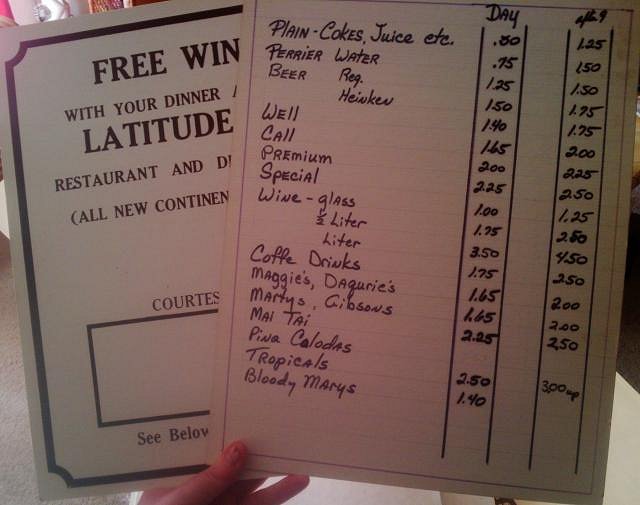 FREE WIN
WITH YOUR DINNER
LATITUDE
RESTAURANT AND DI
(ALL NEW CONTINEN
COURTES
See Below
DAY after 9
PLAIN - COKES, Juice etc. .80 1.25
PERRIER WATER .75 1.50
BEER Reg. 1.25 1.50
Heinken 1.50 1.75
Well 1.40 1.75
Call 1.65 2.00
PREMIUM 2.00 2.25
SPECIAL 2.25 2.50
WINE - glass 1.00 1.25
½ Liter 1.75 2.50
Liter 3.50 4.50
Coffe Drinks 1.75 2.50
MAGGIE'S, DAQURIE'S 1.65 2.00
MARTYS, GIBSONS 1.65 2.00
MAI TAI 2.25 2.50
PINA COLODAS
TROPICALS 2.50 3.00 up
Bloody MARYS 1.40